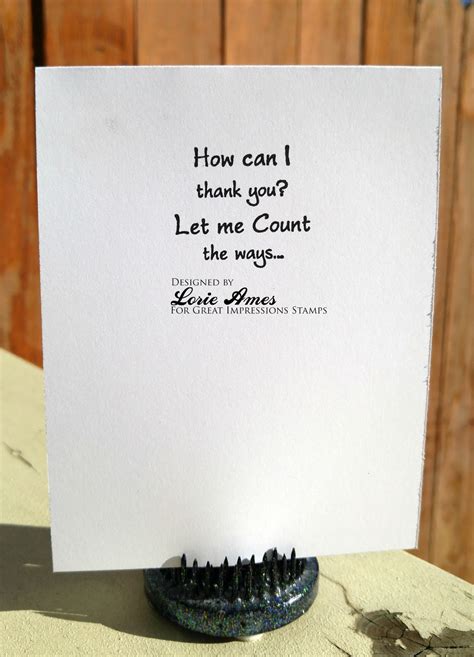 How can I
thank you?
Let me Count
the ways...
Designed by
Lorie Ames
For Great Impressions Stamps